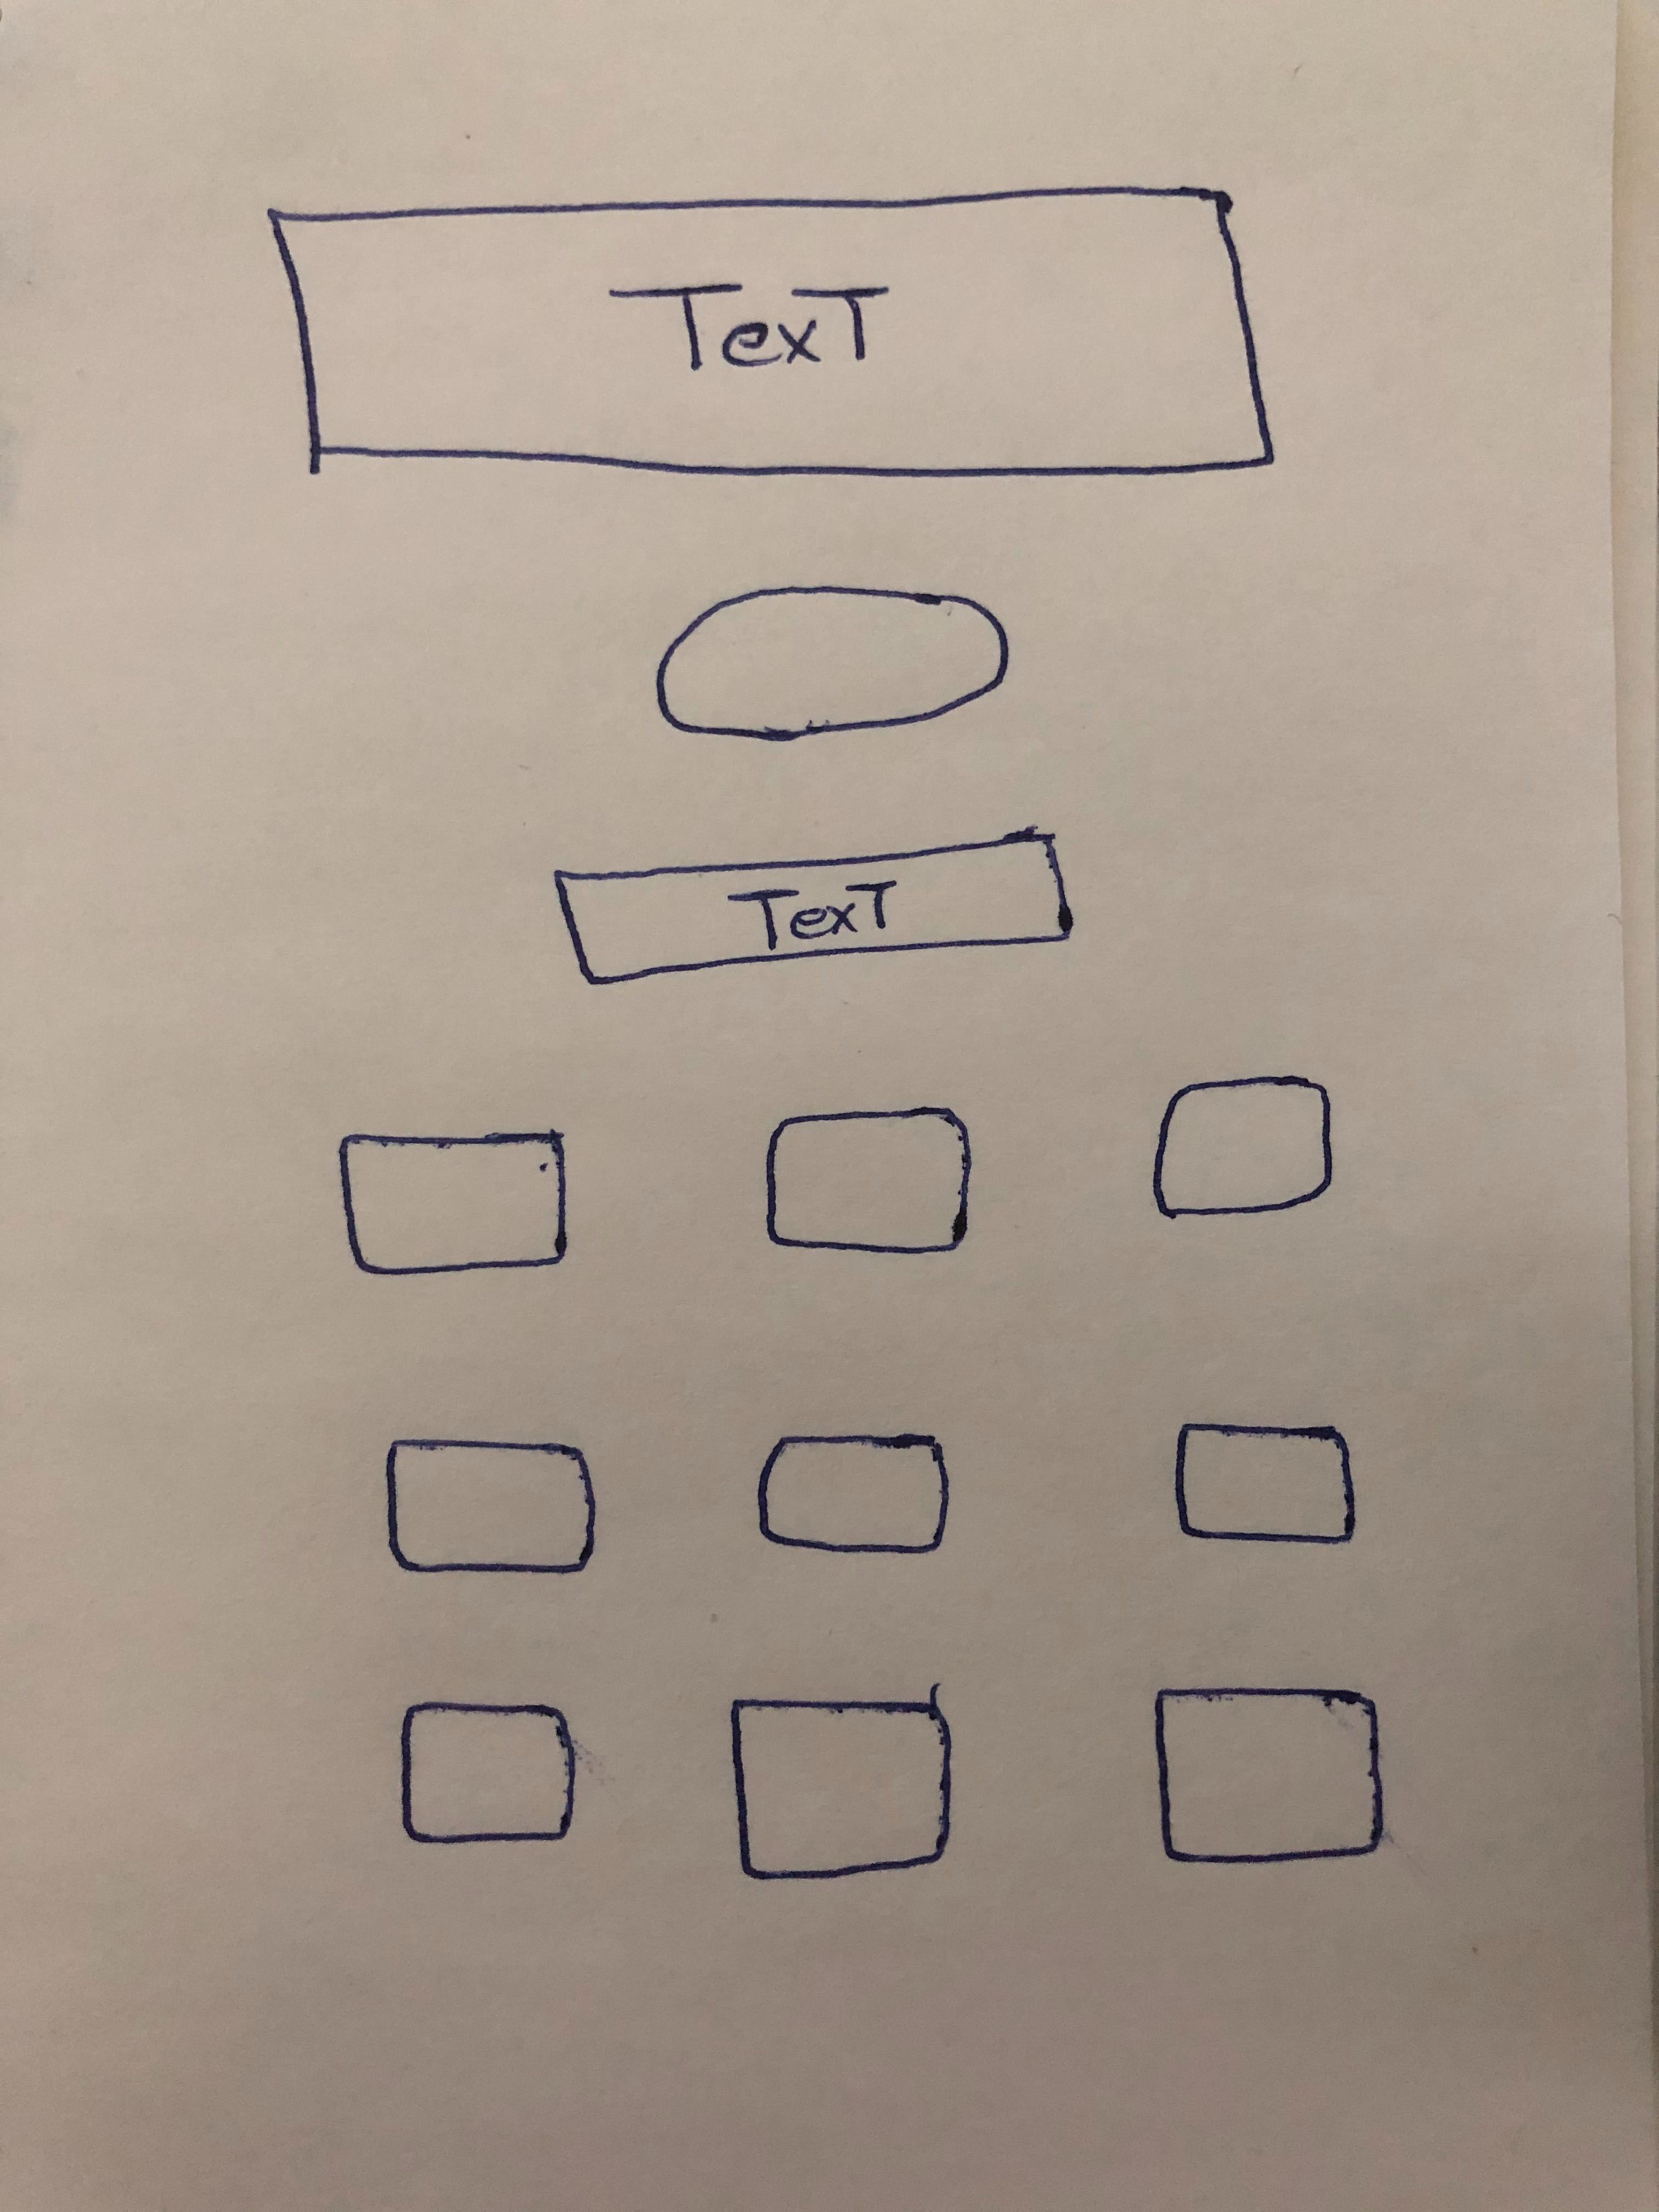 TexT
TexT